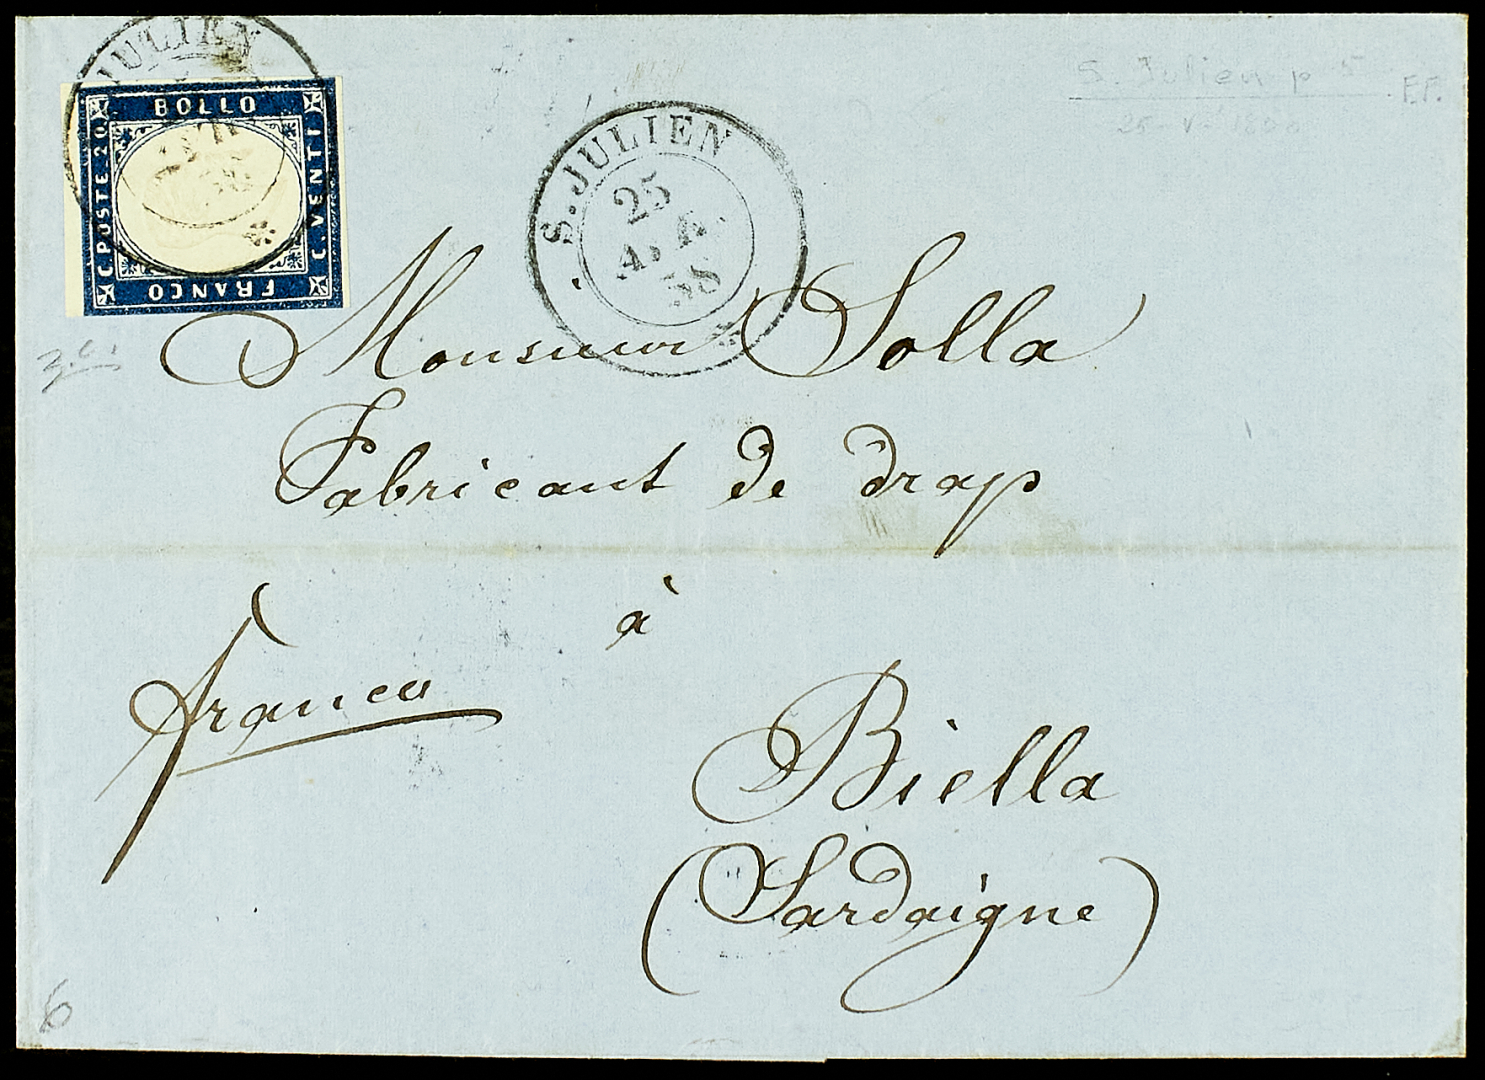 S. JULIEN
BOLLO
C. POSTE. 20
C. VENTI
FRANCO
S. JULIEN
25
58
S. Julien p 5
EF.
25-V-
Monsieur Solla
Fabricant de drap
à
franco
Biella
(Sardaigne)
6